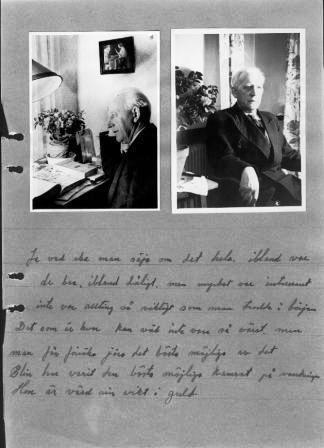 Ja vad ska man säga om det hela, ibland var
de bra, ibland dåligt, men mycket var intressant
inte var allting så riktigt som man trodde i början
Det som är kvar kan väl inte vara så värst, men
man får försöka göra det bästa möjliga av det
har varit den bästa möjliga kamrat på vandringen
Hon är värd sin vikt i guld